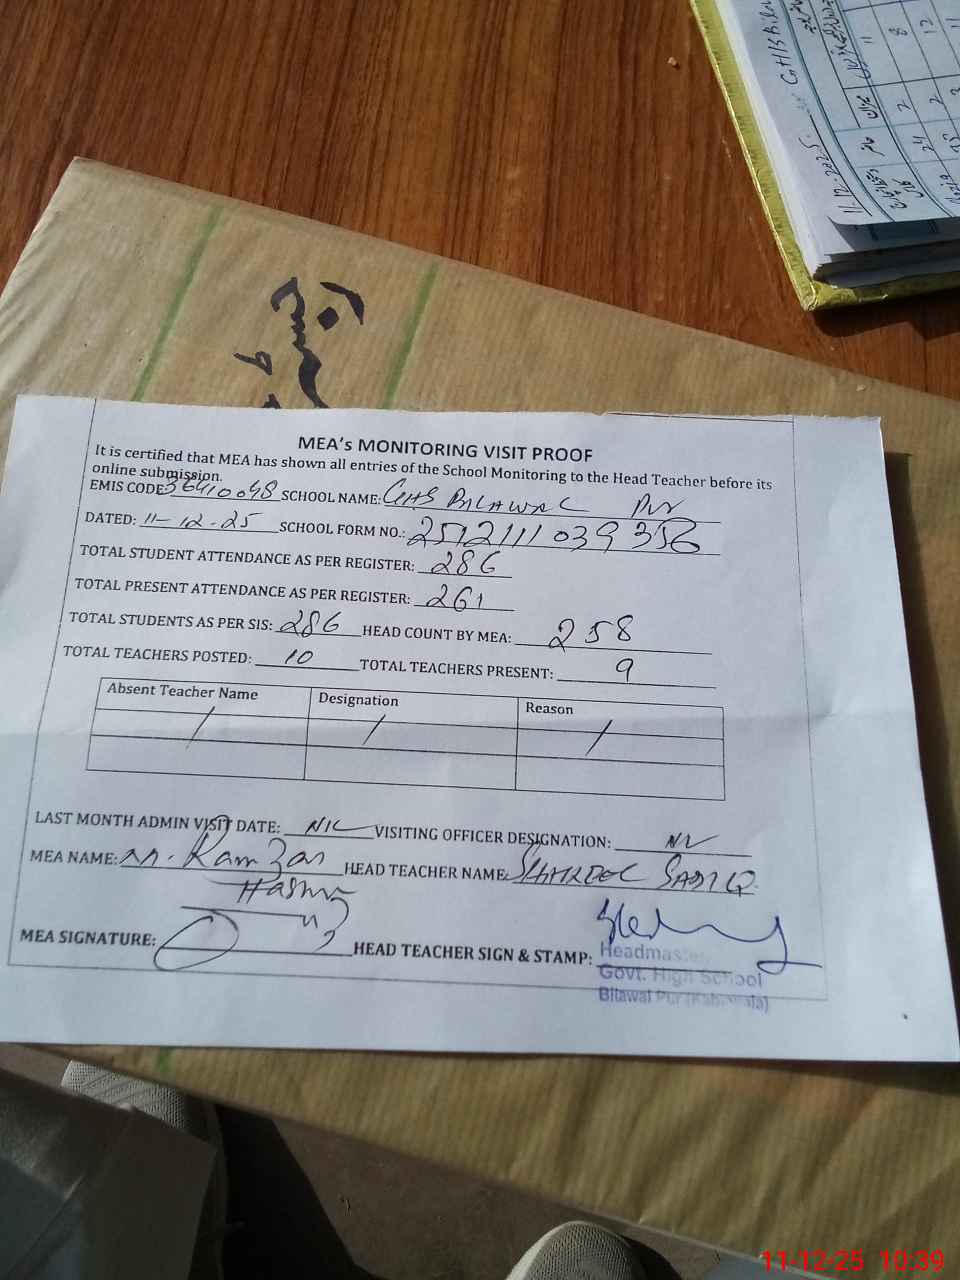 11.12.2025
MEA's MONITORING VISIT PROOF
It is certified that MEA has shown all entries of the School Monitoring to the Head Teacher before its
online submission.
EMIS CODE: 36410048 SCHOOL NAME: GHS BILAWAL PUR
DATED: 11-12-25 SCHOOL FORM NO.: 2512111039356
TOTAL STUDENT ATTENDANCE AS PER REGISTER: 286
TOTAL PRESENT ATTENDANCE AS PER REGISTER: 261
TOTAL STUDENTS AS PER SIS: 286 HEAD COUNT BY MEA: 258
TOTAL TEACHERS POSTED: 10 TOTAL TEACHERS PRESENT: 9
Absent Teacher Name Designation Reason
/ / /
LAST MONTH ADMIN VISIT DATE: NIL VISITING OFFICER DESIGNATION:
MEA NAME: M. Ramzan HEAD TEACHER NAME: SHAKEEL SADIQ
MEA SIGNATURE: HEAD TEACHER SIGN & STAMP:
Headmaster
Govt. High School
Bilawal Pur (Kabirwala)
11-12-25 10:39